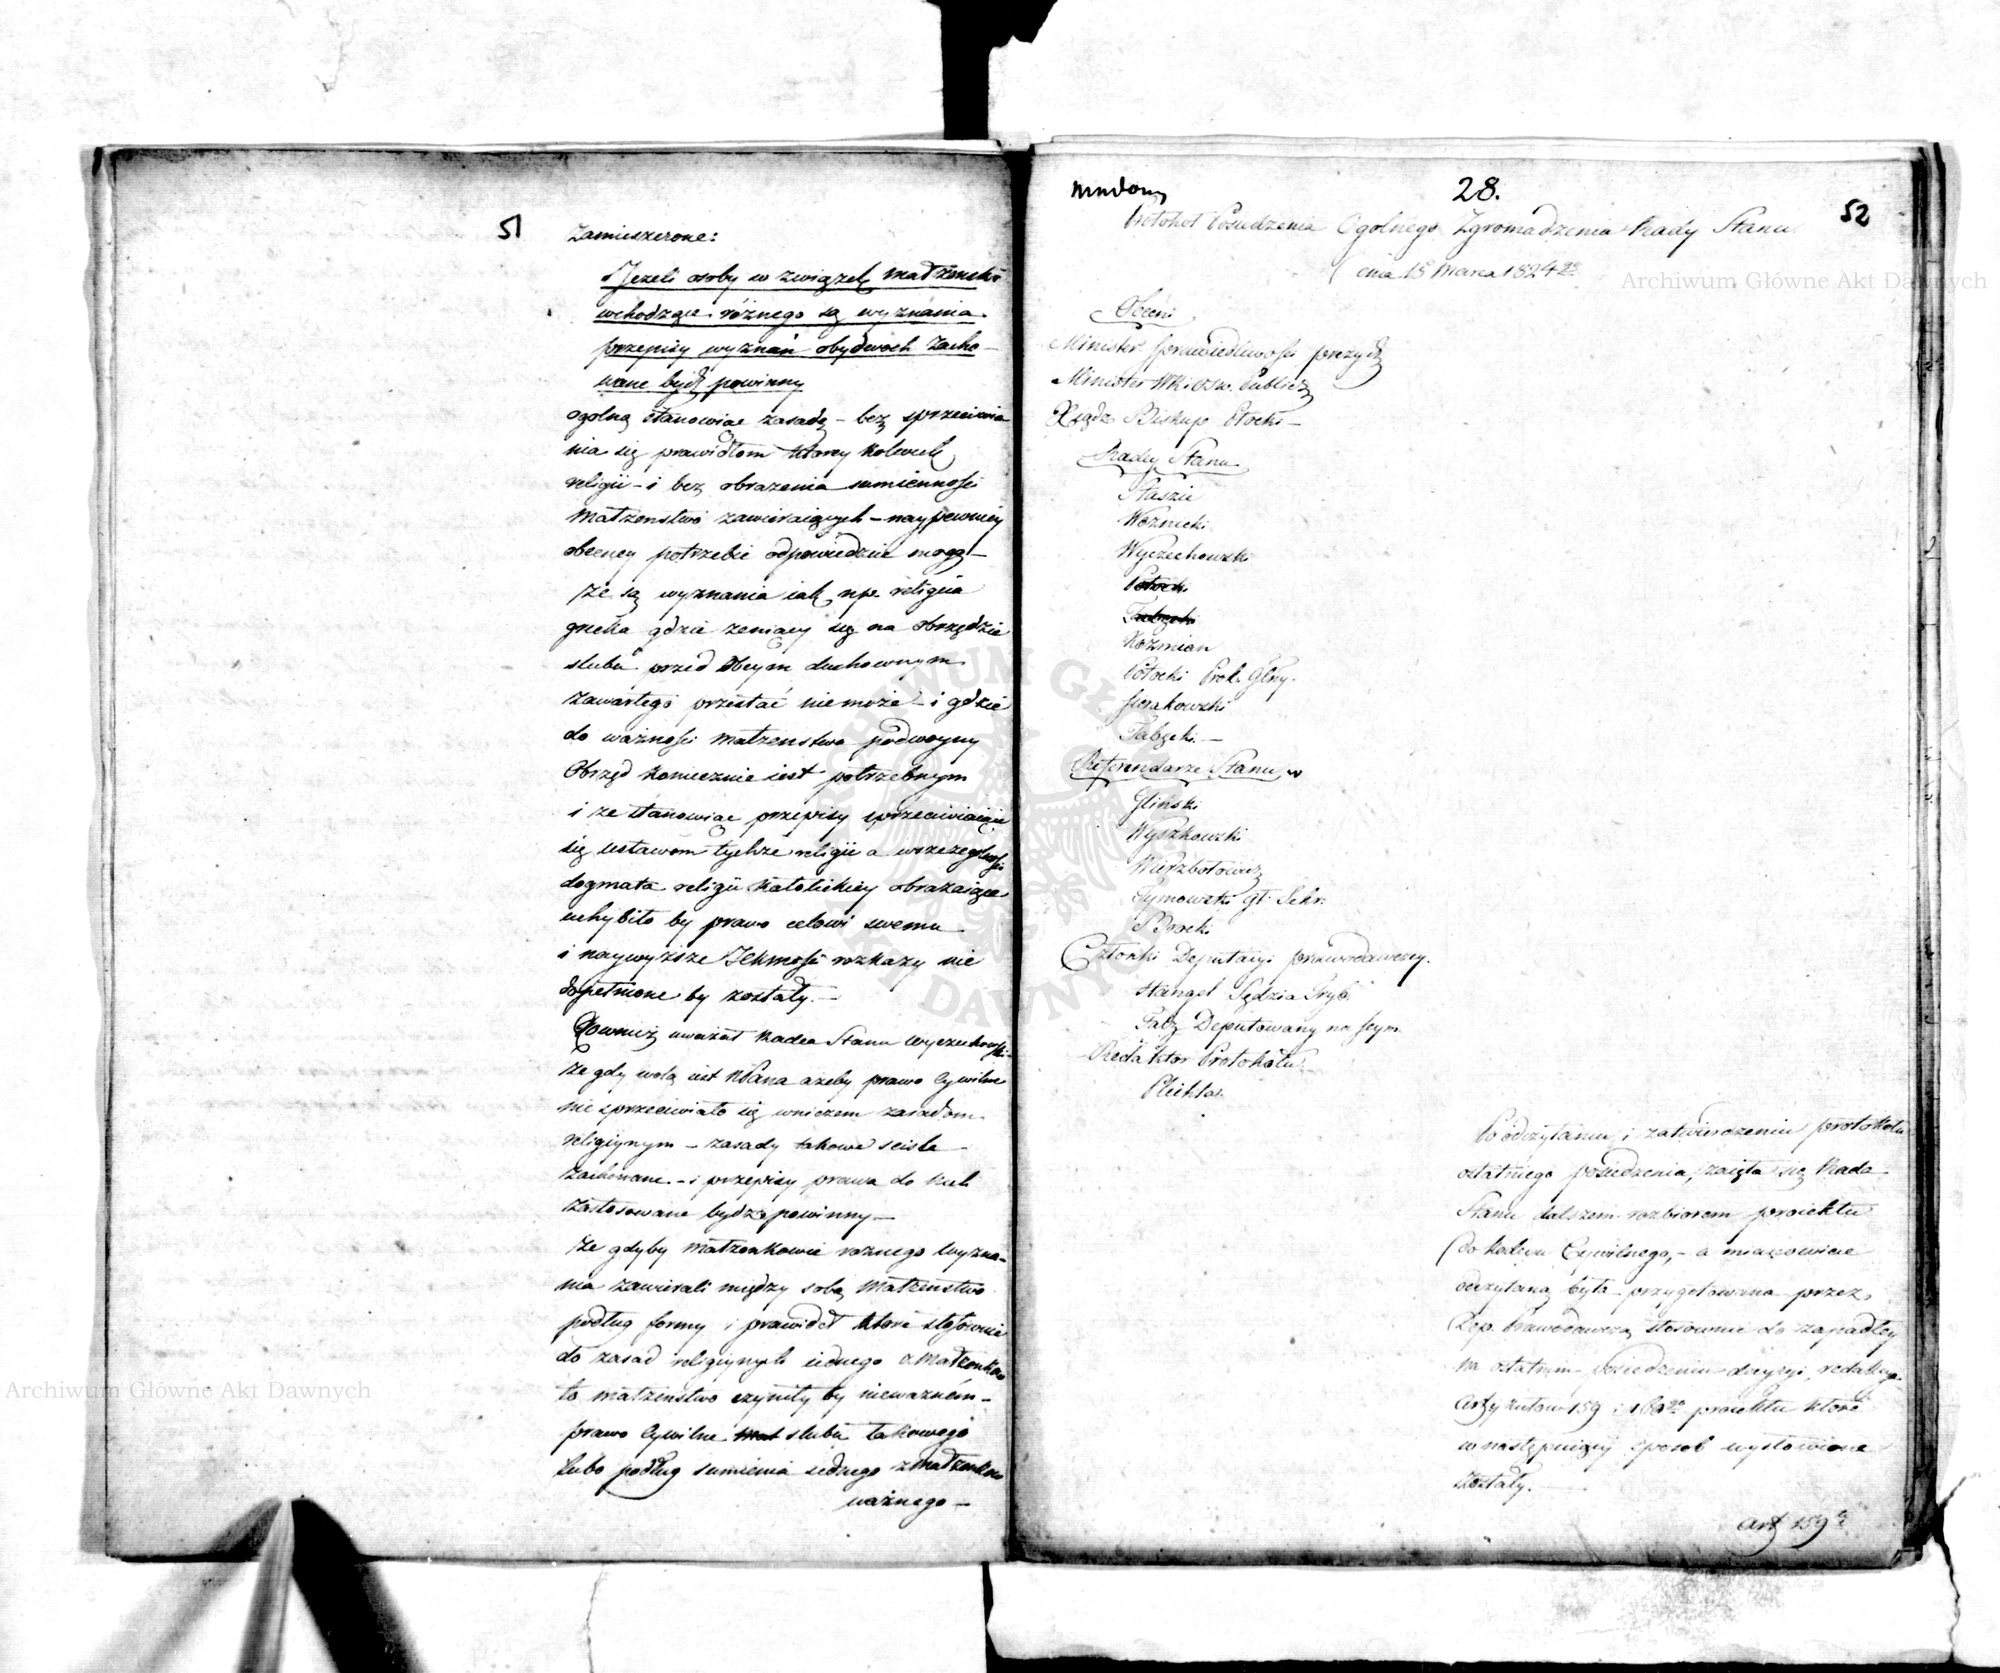 51
Zamieszczone:
Jeżeli osoby w związek małżeński
wchodzące różnego są wyznania
przepisy wyznań obydwoch zacho-
wane bydź powinny
ogolną stanowiąc zasadę – bez sprzeciwia
nia się prawidłom ktorey kolwiek
religii – i bez obrażenia sumienności
Małżenstwo zawieraiących – naypewniey
obecney potrzebie odpowiedzieć mogą –
że są wyznania iak np. religiia
grecka gdzie żeniący się na obrzędzie
slubu przed Obcym duchownym
zawartego przestać nie może – i gdzie
do ważności Małżenstwa podwoyny
Obrzęd koniecznie iest potrzebnym
i że stanowiąc przepisy sprzeciwiaiące
się ustawom tychże religii a wszczególności
dogmata religii Katolickiey obrażaiące
uchybiło by prawo celowi swemu
i naywyższe JCKMości rozkazy nie
dopełnione by zostały. –
Rownież uważał Radca Stanu Wyczechowski
że gdy wolą iest NPana ażeby prawo Cywilne
nie sprzeciwiało się wniczem zasadom
religiynym – zasady takowe sciśle
zachowane – i przepisy prawa do nich
zastosowane bydź powinny –
że gdyby Małżonkowie rożnego wyzna-
nia zawierali między sobą Małżeństwo
podług formy i prawideł które stosownie
do zasad religiynych iednego z Małżonkow
to małżenstwo czyniły by nieważnem –
prawo Cywilne slubu takowego
lubo podług sumienia iednego z Małżonkow
ważnego –
28.
52
Protokoł Posiedzenia Ogolnego Zgromadzenia Rady Stanu
dnia 15 Marca 1824 r.
Obecni
Minister Sprawiedliwości prezyd.
Minister WR i Ośw. Publicz
Xiądz Biskup Płocki –
Radcy Stanu
Staszic
Woznicki
Wyczechowski
Potocki
Tabęcki
Kozmian
Potocki Prok. Glny.
Sierakowski
Tabęcki –
Referendarze Stanu
Gliński
Wyszkowski
Wierzbołowicz
Tymowski gł. Sekr.
Brocki
Członki Deputacyi prawodawczey.
Stangel Sędzia Tryb.
Falz Deputowany na Seym
Redaktor Protokołu
Plichta
Po odczytaniu i zatwierdzeniu protokołu
ostatniego posiedzenia, zaięła się Rada
Stanu dalszem rozbiorem proiektu
do Kodexu Cywilnego, – a mianowicie
odczytaną była przygotowana przez
Dep. Prawodawczą stosownie do zapadłey
na ostatnim posiedzeniu decyzyi, redakcya
Artykułow 159 i 160 go proiektu które
w następuiący sposob wysłowione
zostały. –
Art 159
Archiwum Główne Akt Dawnych
Archiwum Główne Akt Dawnych
ARCHIWUM GŁÓWNE AKT DAWNYCH